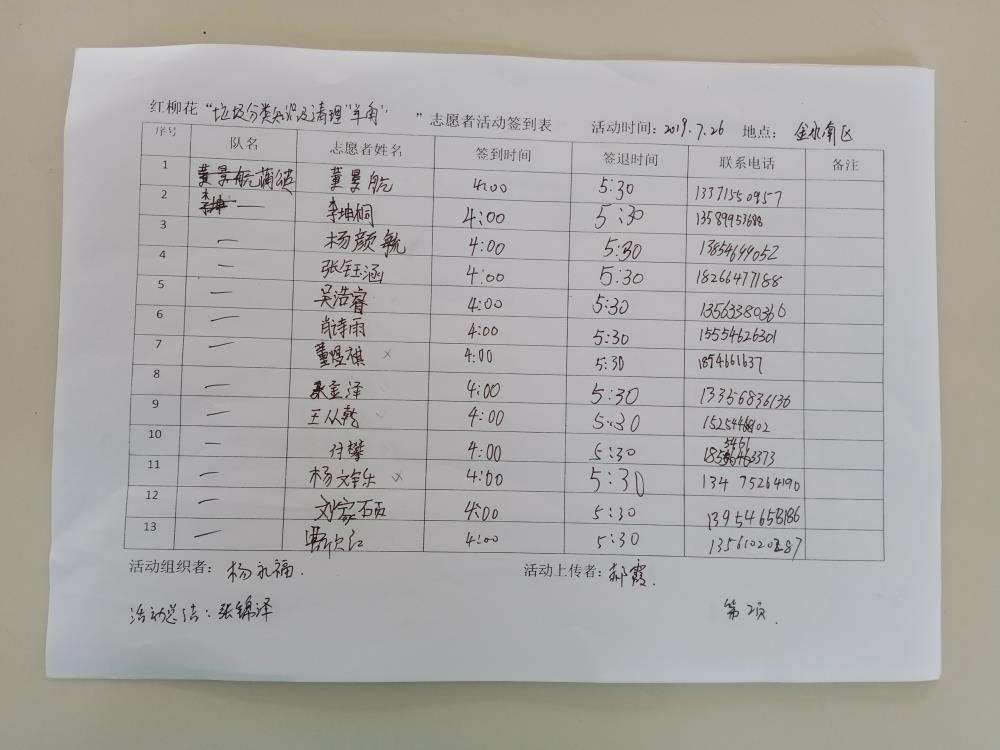 红柳花“垃圾分类知识及清理“羊角” ”志愿者活动签到表 活动时间：2019.7.26 地点：金水南区
序号 队名 志愿者姓名 签到时间 签退时间 联系电话 备注
1 董景航 蒲公英 董景航 4:00 5:30 13371550957
2 李坤 — 李坤桐 4:00 5:30 13589953688
3 — 杨颜毓 4:00 5:30 13854649052
4 — 张钰涵 4:00 5:30 18266477188
5 — 吴浩睿 4:00 5:30 13563380360
6 — 肖诗雨 4:00 5:30 15554626301
7 — 董煜祺 × 4:00 5:30 1854661637
8 — 张宝泽 4:00 5:30 13356836136
9 — 王从乾 4:00 5:30
10 — 付攀 4:00 5:30
11 — 杨文乐 × 4:00 5:30 134 75264190
12 — 刘家硕 4:00 5:30 13954658186
13 — 4:00 5:30
活动组织者：杨永福. 活动上传者：郝霞.
活动总结：张锦泽 第2页.